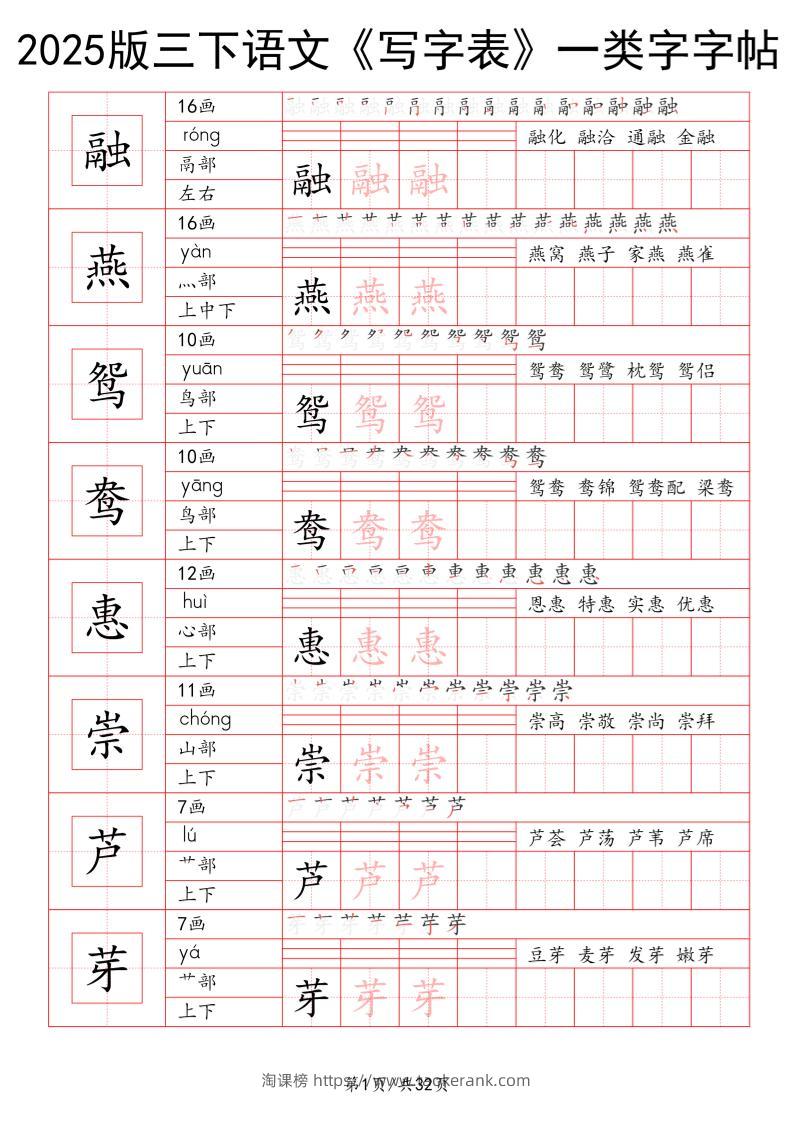 2025版三下语文《写字表》一类字字帖
融
16画
róng
融化 融洽 通融 金融
鬲部
左右
融 融 融
燕
16画
yàn
燕窝 燕子 家燕 燕雀
灬部
上中下
燕 燕 燕
鸳
10画
yuān
鸳鸯 鸳鹭 枕鸳 鸳侣
鸟部
上下
鸳 鸳 鸳
鸯
10画
yāng
鸳鸯 鸯锦 鸳鸯配 梁鸯
鸟部
上下
鸯 鸯 鸯
惠
12画
huì
恩惠 特惠 实惠 优惠
心部
上下
惠 惠 惠
崇
11画
chóng
崇高 崇敬 崇尚 崇拜
山部
上下
崇 崇 崇
芦
7画
lú
芦荟 芦荡 芦苇 芦席
艹部
上下
芦 芦 芦
芽
7画
yá
豆芽 麦芽 发芽 嫩芽
艹部
上下
芽 芽 芽
淘课榜 https://www.taokerank.com
第1页/共32页